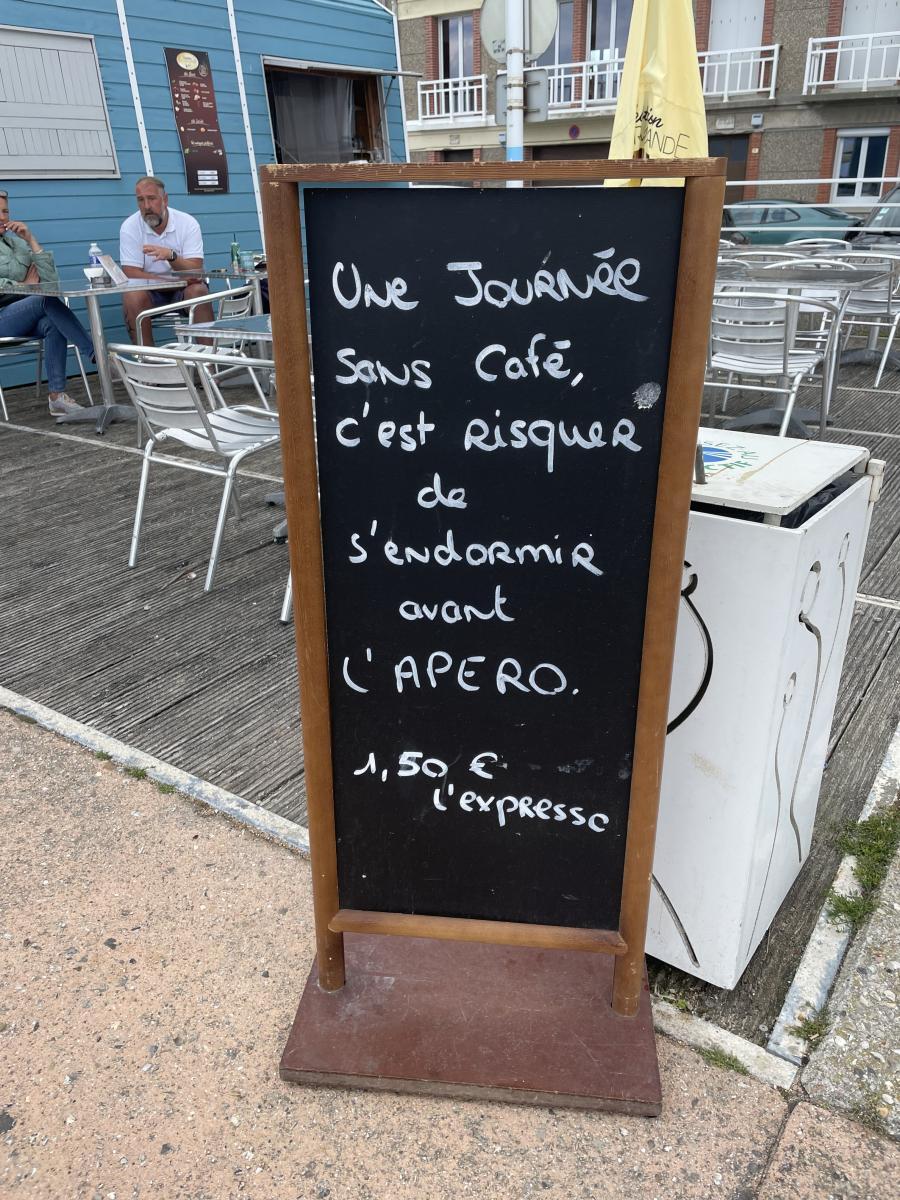 Une Journée
sans Café,
c'est risquer
de
s'endormir
avant
L'APERO.
1,50 €
l'expresso